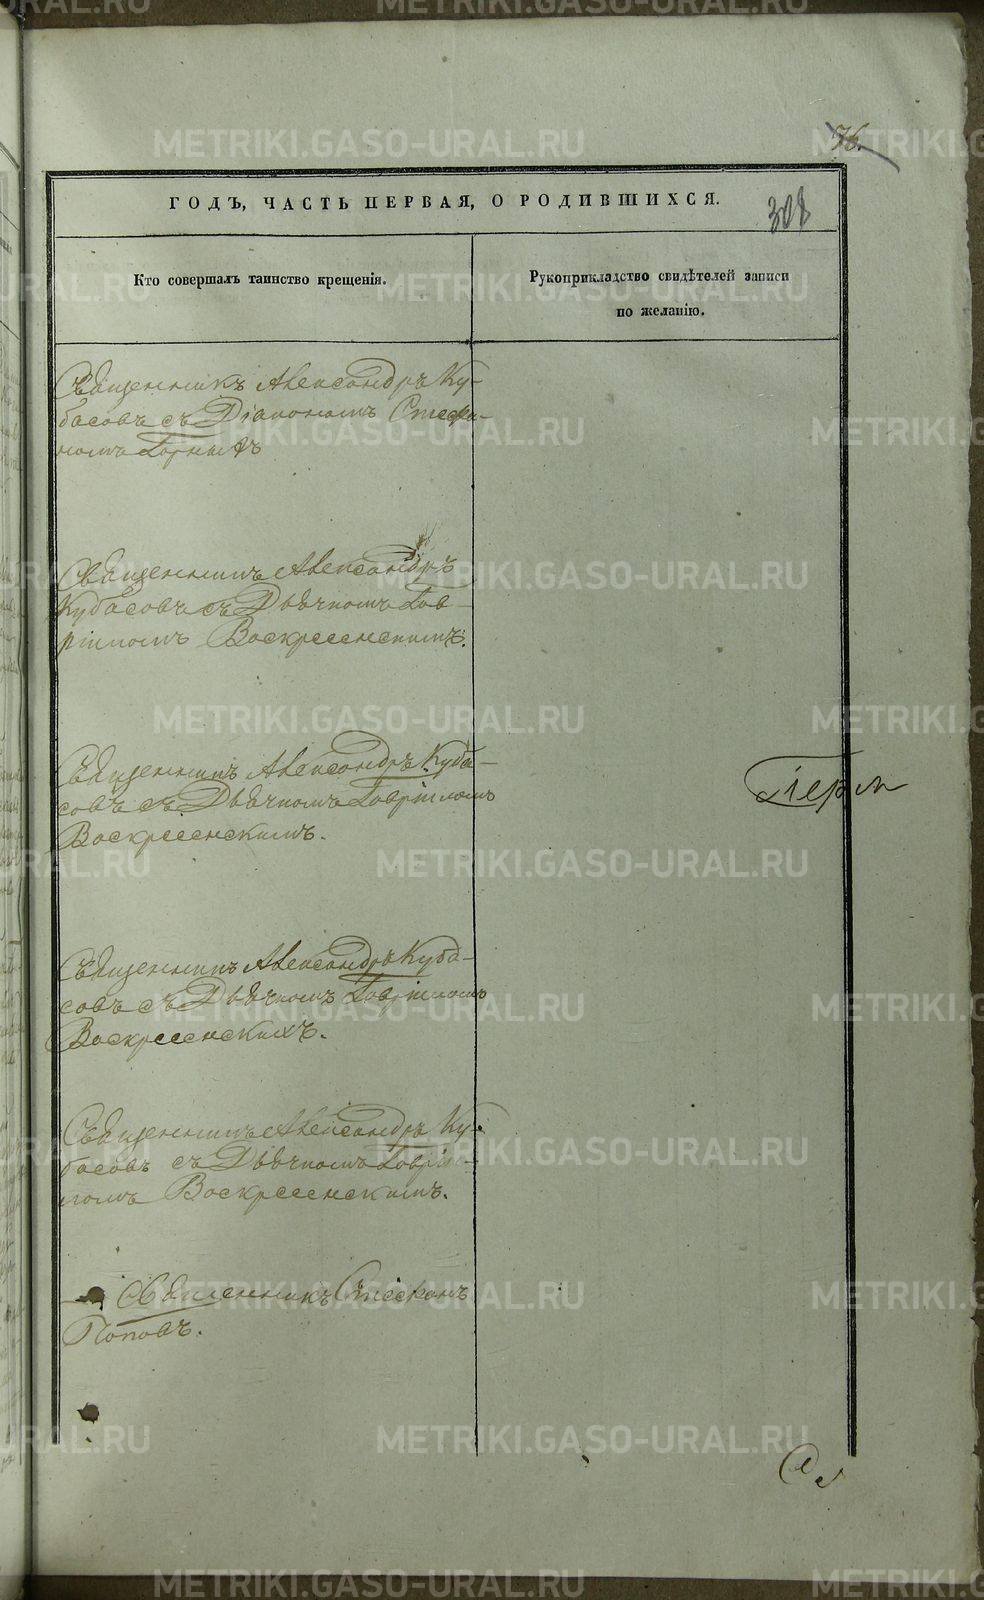 76.
ГОДЪ, ЧАСТЬ ПЕРВАЯ, О РОДИВШИХСЯ.
308
Кто совершалъ таинство крещенія.
Рукоприкладство свидѣтелей записи
по желанію.
Священникъ Александръ Ку-
басовъ съ Діакономъ Стефа-
номъ Горныхъ
Священникъ Александръ
Кубасовъ съ Дьячкомъ Гав-
ріиломъ Воскресенскимъ.
Священникъ Александръ Куба-
совъ съ Дьячкомъ Гавріиломъ
Воскресенскимъ.
Священникъ Александръ Куба-
совъ съ Дьячкомъ Гавріиломъ
Воскресенскимъ.
Священникъ Александръ Ку-
басовъ съ Дьячкомъ Гаврiи-
ломъ Воскресенскимъ.
Священникъ Стефанъ
Поповъ.
METRIKI.GASO-URAL.RU